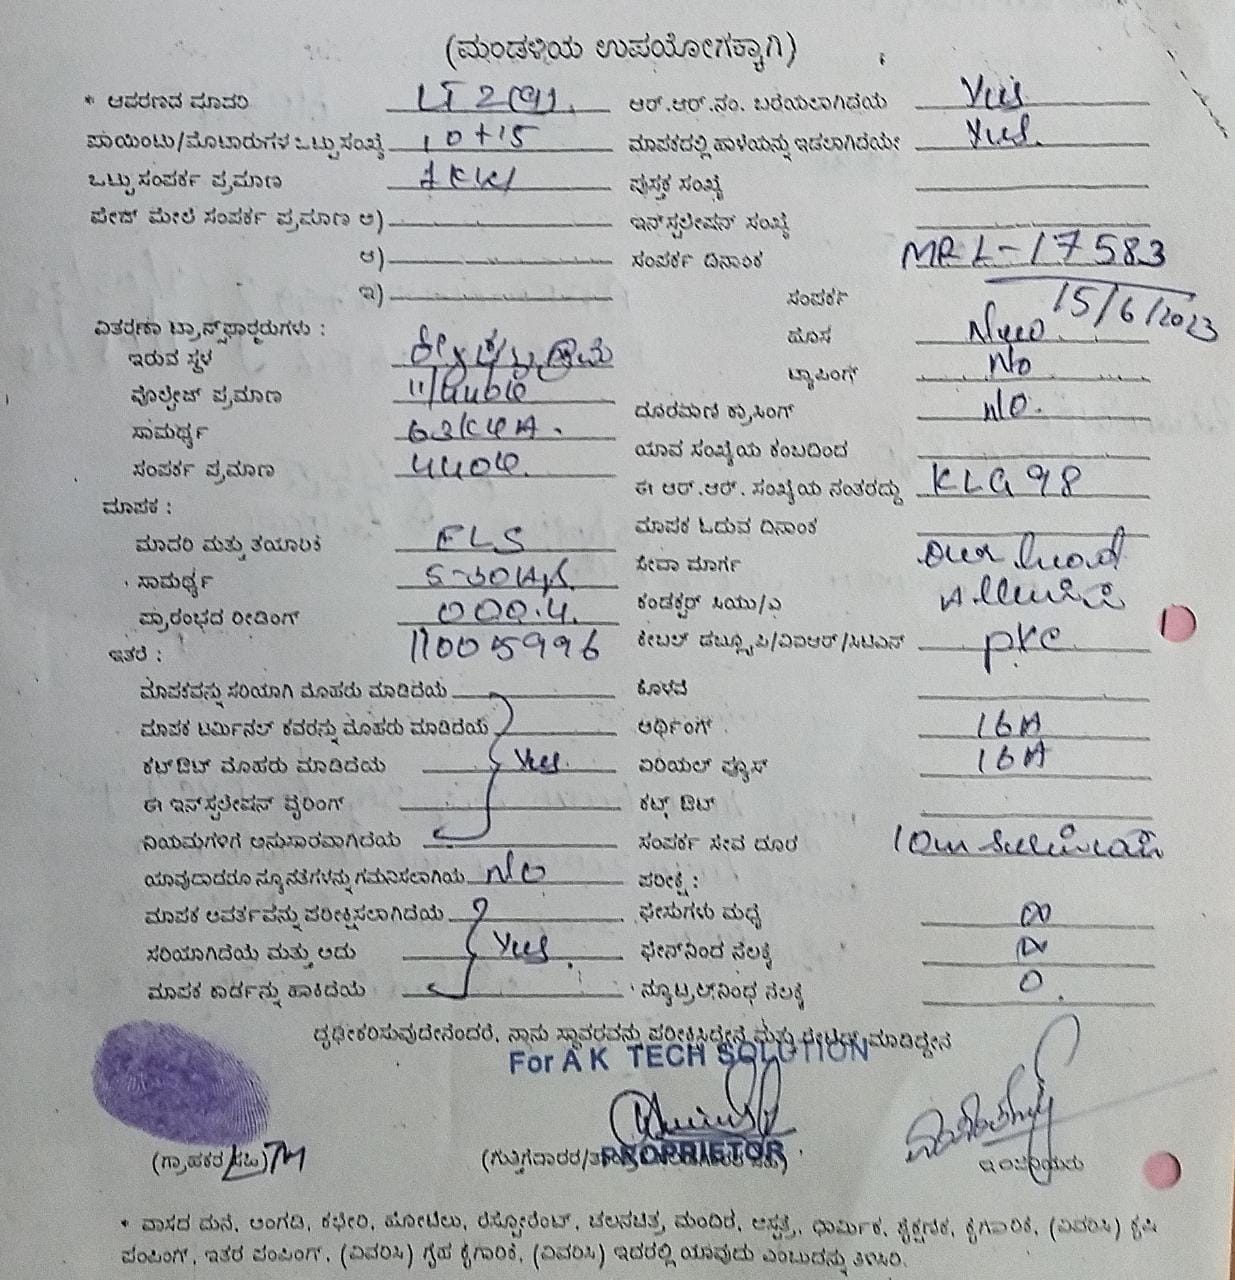 (ಮಂಡಳಿಯ ಉಪಯೋಗಕ್ಕಾಗಿ)
* ಆವರಣದ ಮಾದರಿ LT 2(a)1 ಆರ್.ಆರ್.ನಂ. ಬರೆಯಲಾಗಿದೆಯೆ Yes
ಪಾಯಿಂಟು/ಮೊಟಾರುಗಳ ಒಟ್ಟು ಸಂಖ್ಯೆ 10+15 ಮಾಪಕದಲ್ಲಿ ಹಾಳೆಯನ್ನು ಇಡಲಾಗಿದೆಯೇ Yes.
ಒಟ್ಟು ಸಂಪರ್ಕ ಪ್ರಮಾಣ 1KW ಪುಸ್ತಕ ಸಂಖ್ಯೆ
ಪೇಜ್ ಮೇಲೆ ಸಂಪರ್ಕ ಪ್ರಮಾಣ ಅ) ಇನ್‌ಸ್ಟಲೇಷನ್ ಸಂಖ್ಯೆ
ಆ) ಸಂಪರ್ಕ ದಿನಾಂಕ MRL-17583
ಇ) ಸಂಪರ್ಕ 15/6/2023
ವಿತರಣಾ ಟ್ರಾನ್ಸ್‌ಫಾರ್ಮರುಗಳು : ಹೊಸ New
ಇರುವ ಸ್ಥಳ ಟ್ಯಾಪಿಂಗ್ No
ವೊಲ್ಟೇಜ್ ಪ್ರಮಾಣ 11/440V ದೂರವಾಣಿ ಕ್ರಾಸಿಂಗ್ No.
ಸಾಮರ್ಥ್ಯ 63KVA. ಯಾವ ಸಂಖ್ಯೆಯ ಕಂಬದಿಂದ
ಸಂಪರ್ಕ ಪ್ರಮಾಣ 440V. ಈ ಆರ್.ಆರ್. ಸಂಖ್ಯೆಯ ನಂತರದ್ದು KLG98
ಮಾಪಕ : ಮಾಪಕ ಓದುವ ದಿನಾಂಕ
ಮಾದರಿ ಮತ್ತು ತಯಾರಿಕೆ ELS ಸೇವಾ ಮಾರ್ಗ over head
ಸಾಮರ್ಥ್ಯ 5-30A ಕಂಡಕ್ಟರ್ ಸಿಯು/ಎ
ಪ್ರಾರಂಭದ ರೀಡಿಂಗ್ 000.4. ಕೇಬಲ್ ಡಬ್ಲ್ಯೂಪಿ/ವಿಐಆರ್/ಸಿಟಿಎಸ್ pvc
ಇತರೆ : 11005996
ಮಾಪಕವನ್ನು ಸರಿಯಾಗಿ ಮೊಹರು ಮಾಡಿದೆಯೆ ಕೊಳವೆ
ಮಾಪಕ ಟರ್ಮಿನಲ್ ಕವರನ್ನು ಮೊಹರು ಮಾಡಿದೆಯೆ ಅರ್ಥಿಂಗ್ 16A
ಕಟ್‌ಔಟ್ ಮೊಹರು ಮಾಡಿದೆಯೆ Yes. ಏರಿಯಲ್ ಫ್ಯೂಸ್ 16A
ಈ ಇನ್‌ಸ್ಟಲೇಷನ್ ವೈರಿಂಗ್ ಕಟ್ಔಟ್
ನಿಯಮಗಳಿಗೆ ಅನುಸಾರವಾಗಿದೆಯೆ ಸಂಪರ್ಕ ಸೇವೆ ದೂರ 10m
ಯಾವುದಾದರೂ ನ್ಯೂನತೆಗಳನ್ನು ಗಮನಿಸಲಾಗಿಯೆ No ಪರೀಕ್ಷೆ :
ಮಾಪಕ ಆವರ್ತವನ್ನು ಪರೀಕ್ಷಿಸಲಾಗಿದೆಯೆ ಫೇಸುಗಳು ಮಧ್ಯೆ ∞
ಸರಿಯಾಗಿದೆಯೆ ಮತ್ತು ಅದು Yes. ಫೇಸ್‌ನಿಂದ ನೆಲಕ್ಕೆ ∞
ಮಾಪಕ ಕಾರ್ಡನ್ನು ಹಾಕಿದೆಯೆ ನ್ಯೂಟ್ರಲ್‌ನಿಂಧ ನೆಲಕ್ಕೆ 0.
ದೃಢೀಕರಿಸುವುದೇನೆಂದರೆ, ನಾನು ಸ್ಥಾವರವನ್ನು ಪರೀಕ್ಷಿಸಿದ್ದೇನೆ ಮತ್ತು ಮಾಡಿದ್ದೇನೆ
For A K TECH SOLUTION
(ಗ್ರಾಹಕರ ಸಹಿ) LTM PROPRIETOR
* ವಾಸದ ಮನೆ, ಅಂಗಡಿ, ಕಛೇರಿ, ಹೋಟೆಲು, ರೆಸ್ಟೋರೆಂಟ್, ಚಲನಚಿತ್ರ ಮಂದಿರ, ಆಸ್ಪತ್ರೆ, ಧಾರ್ಮಿಕ, ಶೈಕ್ಷಣಿಕ, ಕೈಗಾರಿಕೆ, (ವಿವರಿಸಿ) ಕೃಷಿ
ಪಂಪಿಂಗ್, ಇತರ ಪಂಪಿಂಗ್, (ವಿವರಿಸಿ) ಗೃಹ ಕೈಗಾರಿಕೆ, (ವಿವರಿಸಿ) ಇದರಲ್ಲಿ ಯಾವುದು ಎಂಬುದನ್ನು ತಿಳಿಸಿರಿ.